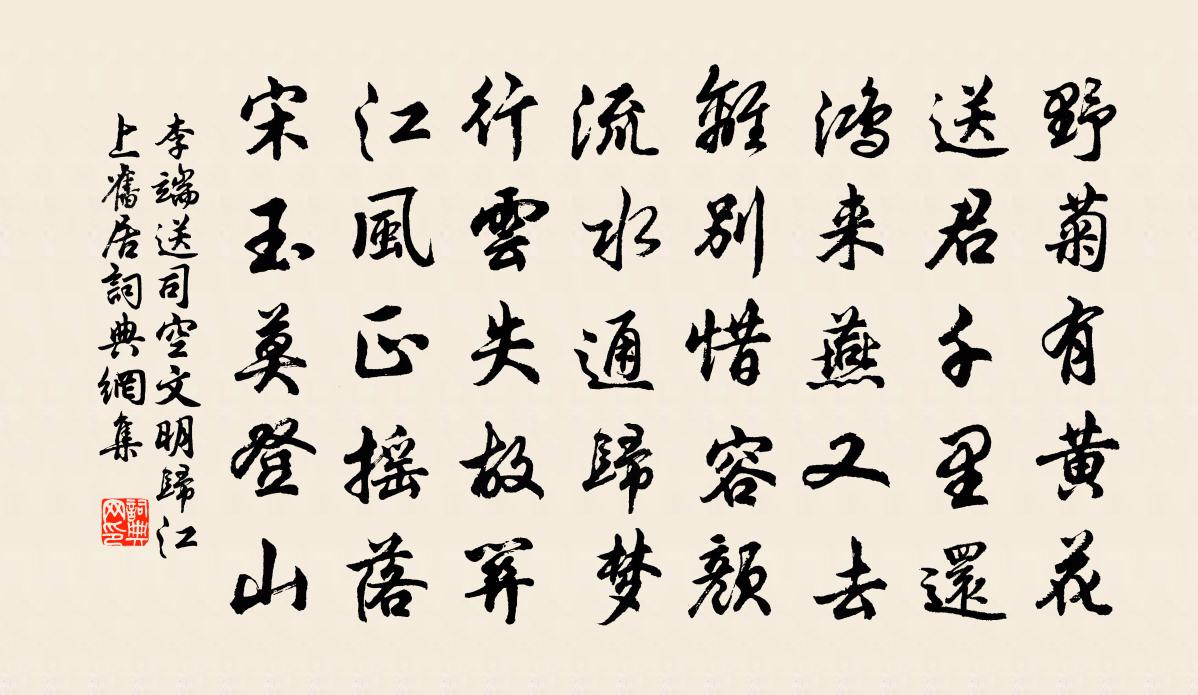 野菊有黄花
送君千里還
鸿来燕又去
離别惜容顔
流水通歸梦
行雲失故關
江風正摇落
宋玉莫登山
李端送司空文明歸江
上舊居詞典網集
詞典
网印